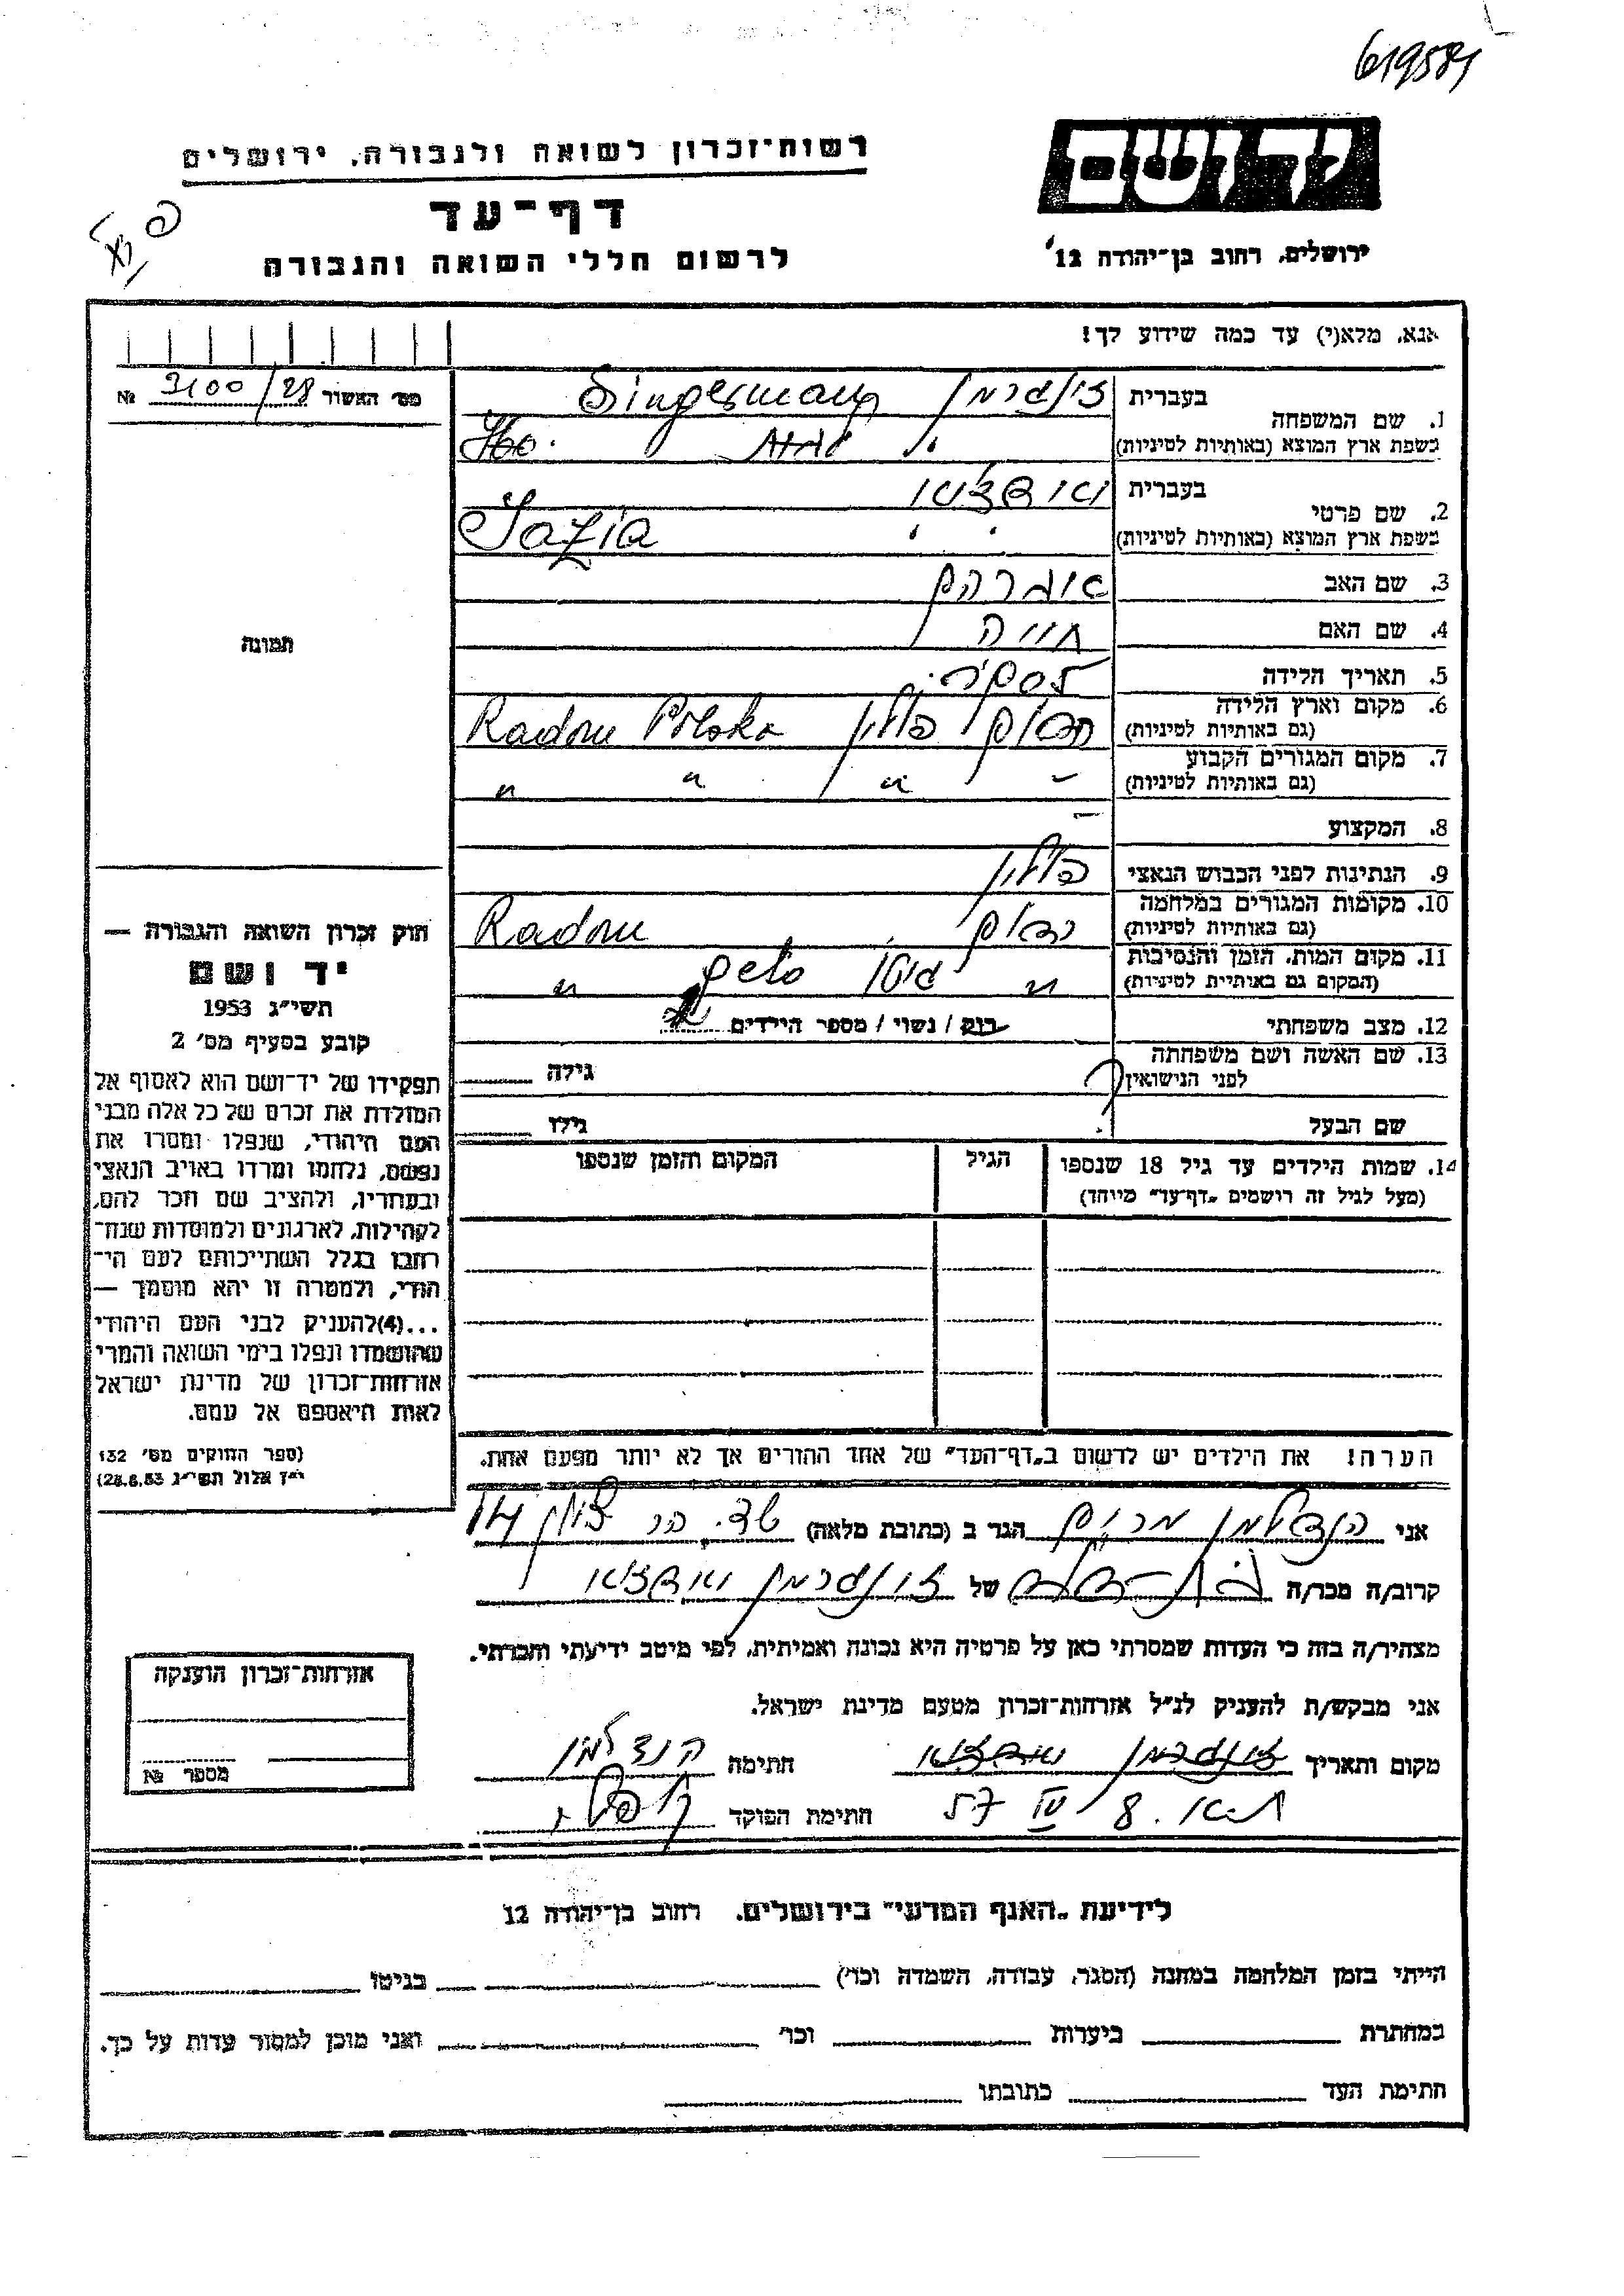 619581
רשות־זכרון לשואה ולגבורה, ירושלים
יד ושם
דף־עד
לרשום חללי השואה והגבורה
ירושלים, רחוב בן־יהודה 12
אנא, מלא(י) עד כמה שידוע לך!
מס׳ האשור 28/ №
1. שם המשפחה
בעברית זינגרמן Singerman
בשפת ארץ המוצא (באותיות לטיניות)
2. שם פרטי
בעברית
בשפת ארץ המוצא (באותיות לטיניות)
3. שם האב אברהם
4. שם האם חייה
5. תאריך הלידה
6. מקום וארץ הלידה פולין Radom Polska
(גם באותיות לטיניות)
7. מקום המגורים הקבוע " " "
(גם באותיות לטיניות)
8. המקצוע —
9. הנתינות לפני הכבוש הנאצי פולין
10. מקומות המגורים במלחמה Radom
(גם באותיות לטיניות)
11. מקום המות, הזמן והנסיבות " גיטו "
(המקום גם באותיות לטיניות)
12. מצב משפחתי רוק / נשוי / מספר הילדים
13. שם האשה ושם משפחתה
לפני הנישואין ? גילה
שם הבעל גילו
14. שמות הילדים עד גיל 18 שנספו הגיל המקום והזמן שנספו
(מעל לגיל זה רושמים „דף־עד״ מיוחד)
הערה! את הילדים יש לרשום ב„דף־העד״ של אחד ההורים אך לא יותר מפעם אחת.
תמונה
חוק זכרון השואה והגבורה —
יד ושם
תשי״ג 1953
קובע בסעיף מס׳ 2
תפקידו של יד־ושם הוא לאסוף אל
המולדת את זכרם של כל אלה מבני
העם היהודי, שנפלו ומסרו את
נפשם, נלחמו ומרדו באויב הנאצי
ובעוזריו, ולהציב שם וזכר להם,
לקהילות, לארגונים ולמוסדות שנח־
רבו בגלל השתייכותם לעם הי־
הודי, ולמטרה זו יהא מוסמך —
...(4)להעניק לבני העם היהודי
שהושמדו ונפלו בימי השואה והמרי
אזרחות־זכרון של מדינת ישראל
לאות היאספם אל עמם.
(ספר החוקים מס׳ 132
י״ז אלול תשי״ג 28.8.53)
אני הנדלמן מרים הגר ב (כתובת מלאה) שד. הר ציון
קרוב/ה מכר/ה בת־דודה של זינגרמן
מצהיר/ה בזה כי העדות שמסרתי כאן על פרטיה היא נכונה ואמיתית, לפי מיטב ידיעתי והכרתי.
אני מבקש/ת להעניק לנ״ל אזרחות־זכרון מטעם מדינת ישראל.
מקום ותאריך זינגרמן חתימה הנדלמן
ת״א. 8 57 חתימת הפוקד
אזרחות־זכרון הוענקה
מספר №
לידיעת „האגף המדעי״ בירושלים. רחוב בן־יהודה 12
הייתי בזמן המלחמה במחנה (הסגר, עבודה, השמדה וכו׳) בגיטו
במחתרת ביערות וכו׳ ואני מוכן למסור עדות על כך.
חתימת העד כתובתו